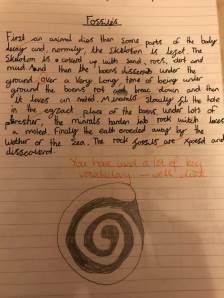 Fossils
First an animal dies then some parts of the body
decay and, normally, the skeleton is left. The
skeleton is coverd up with sand, rock, dirt and
mud. And then the bones under the
ground. Over a very long time of being under
ground the bones rot break down and then
it leves an moled. Minerals slowly fill the hole
in the place of the bone under lots of
the minrals harden into rock witch
a moled. Finally the eath eroaded away by the
wether or the Sea. The rock fossils are xposd and
discoverd.
You have used a lot of key
vocabulary - well done